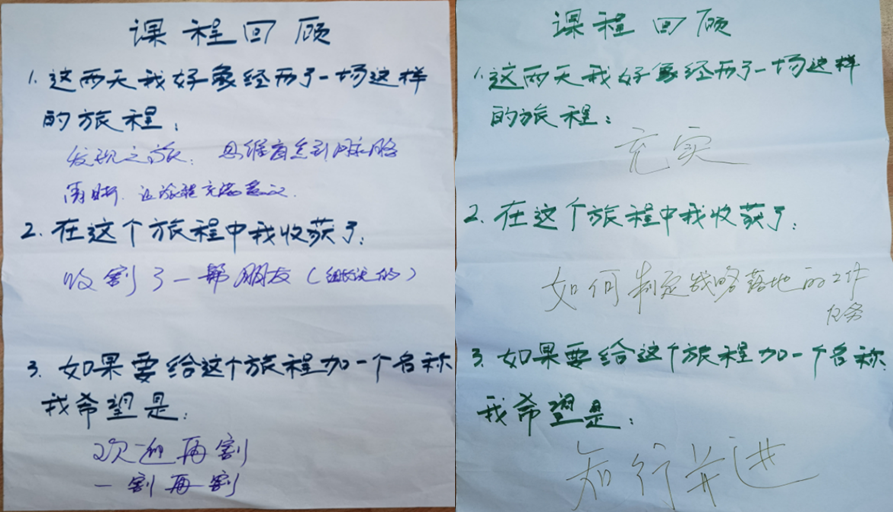 课程回顾
1. 这两天我好象经历了一场这样
的旅程：
发现之旅，思维
清晰，让旅程充满意义.
2. 在这个旅程中我收获了：
收割了一帮朋友（
3. 如果要给这个旅程加一个名称
我希望是：
欢迎再割
一割再割
课程回顾
1. 这两天我好象经历了一场这样
的旅程：
充实
2. 在这个旅程中我收获了：
如何制定战略落地的工作
任务
3. 如果要给这个旅程加一个名称
我希望是：
知行并进